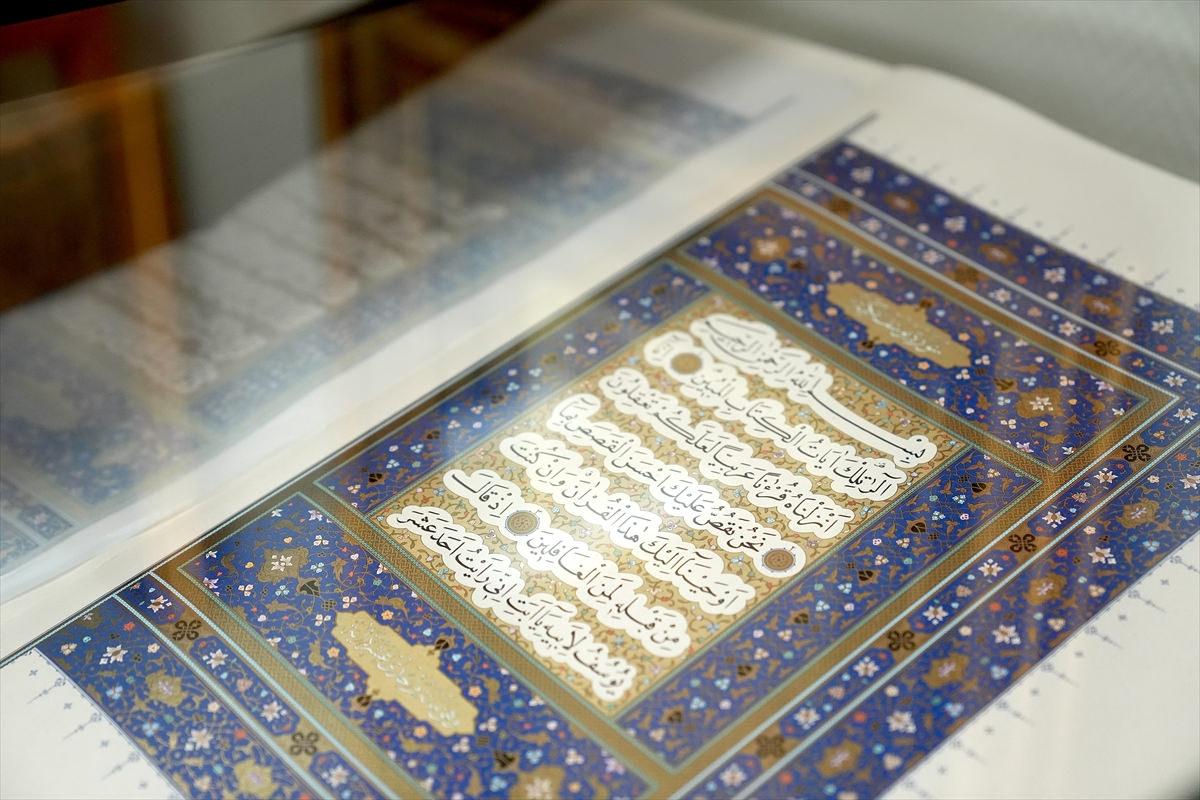 بِسْمِ اللهِ الرَّحْمٰنِ الرَّحِيمِ
الٓرٰ تِلْكَ اٰيَاتُ الْكِتَابِ الْمُبِينِ اِنَّٓا
اَنْزَلْنَاهُ قُرْءٰنًا عَرَبِيًّا لَعَلَّكُمْ تَعْقِلُونَ
نَحْنُ نَقُصُّ عَلَيْكَ اَحْسَنَ الْقَصَصِ بِمَٓا
اَوْحَيْنَٓا اِلَيْكَ هٰذَا الْقُرْاٰنَ وَاِنْ كُنْتَ
مِنْ قَبْلِهِ لَمِنَ الْغَافِلِينَ اِذْ قَالَ
يُوسُفُ لِاَبِيهِ يَٓا اَبَتِ اِنِّي رَاَيْتُ اَحَدَ عَشَرَ